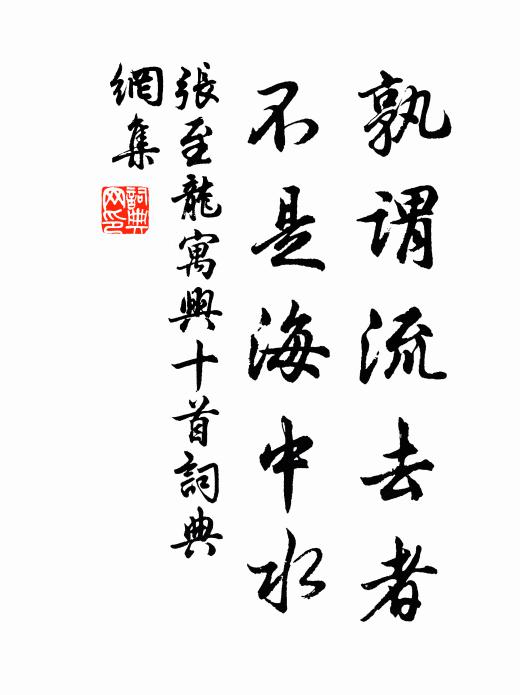 孰謂流去者
不是海中水
張至龍寓興十首詞典
網集
詞典
网印